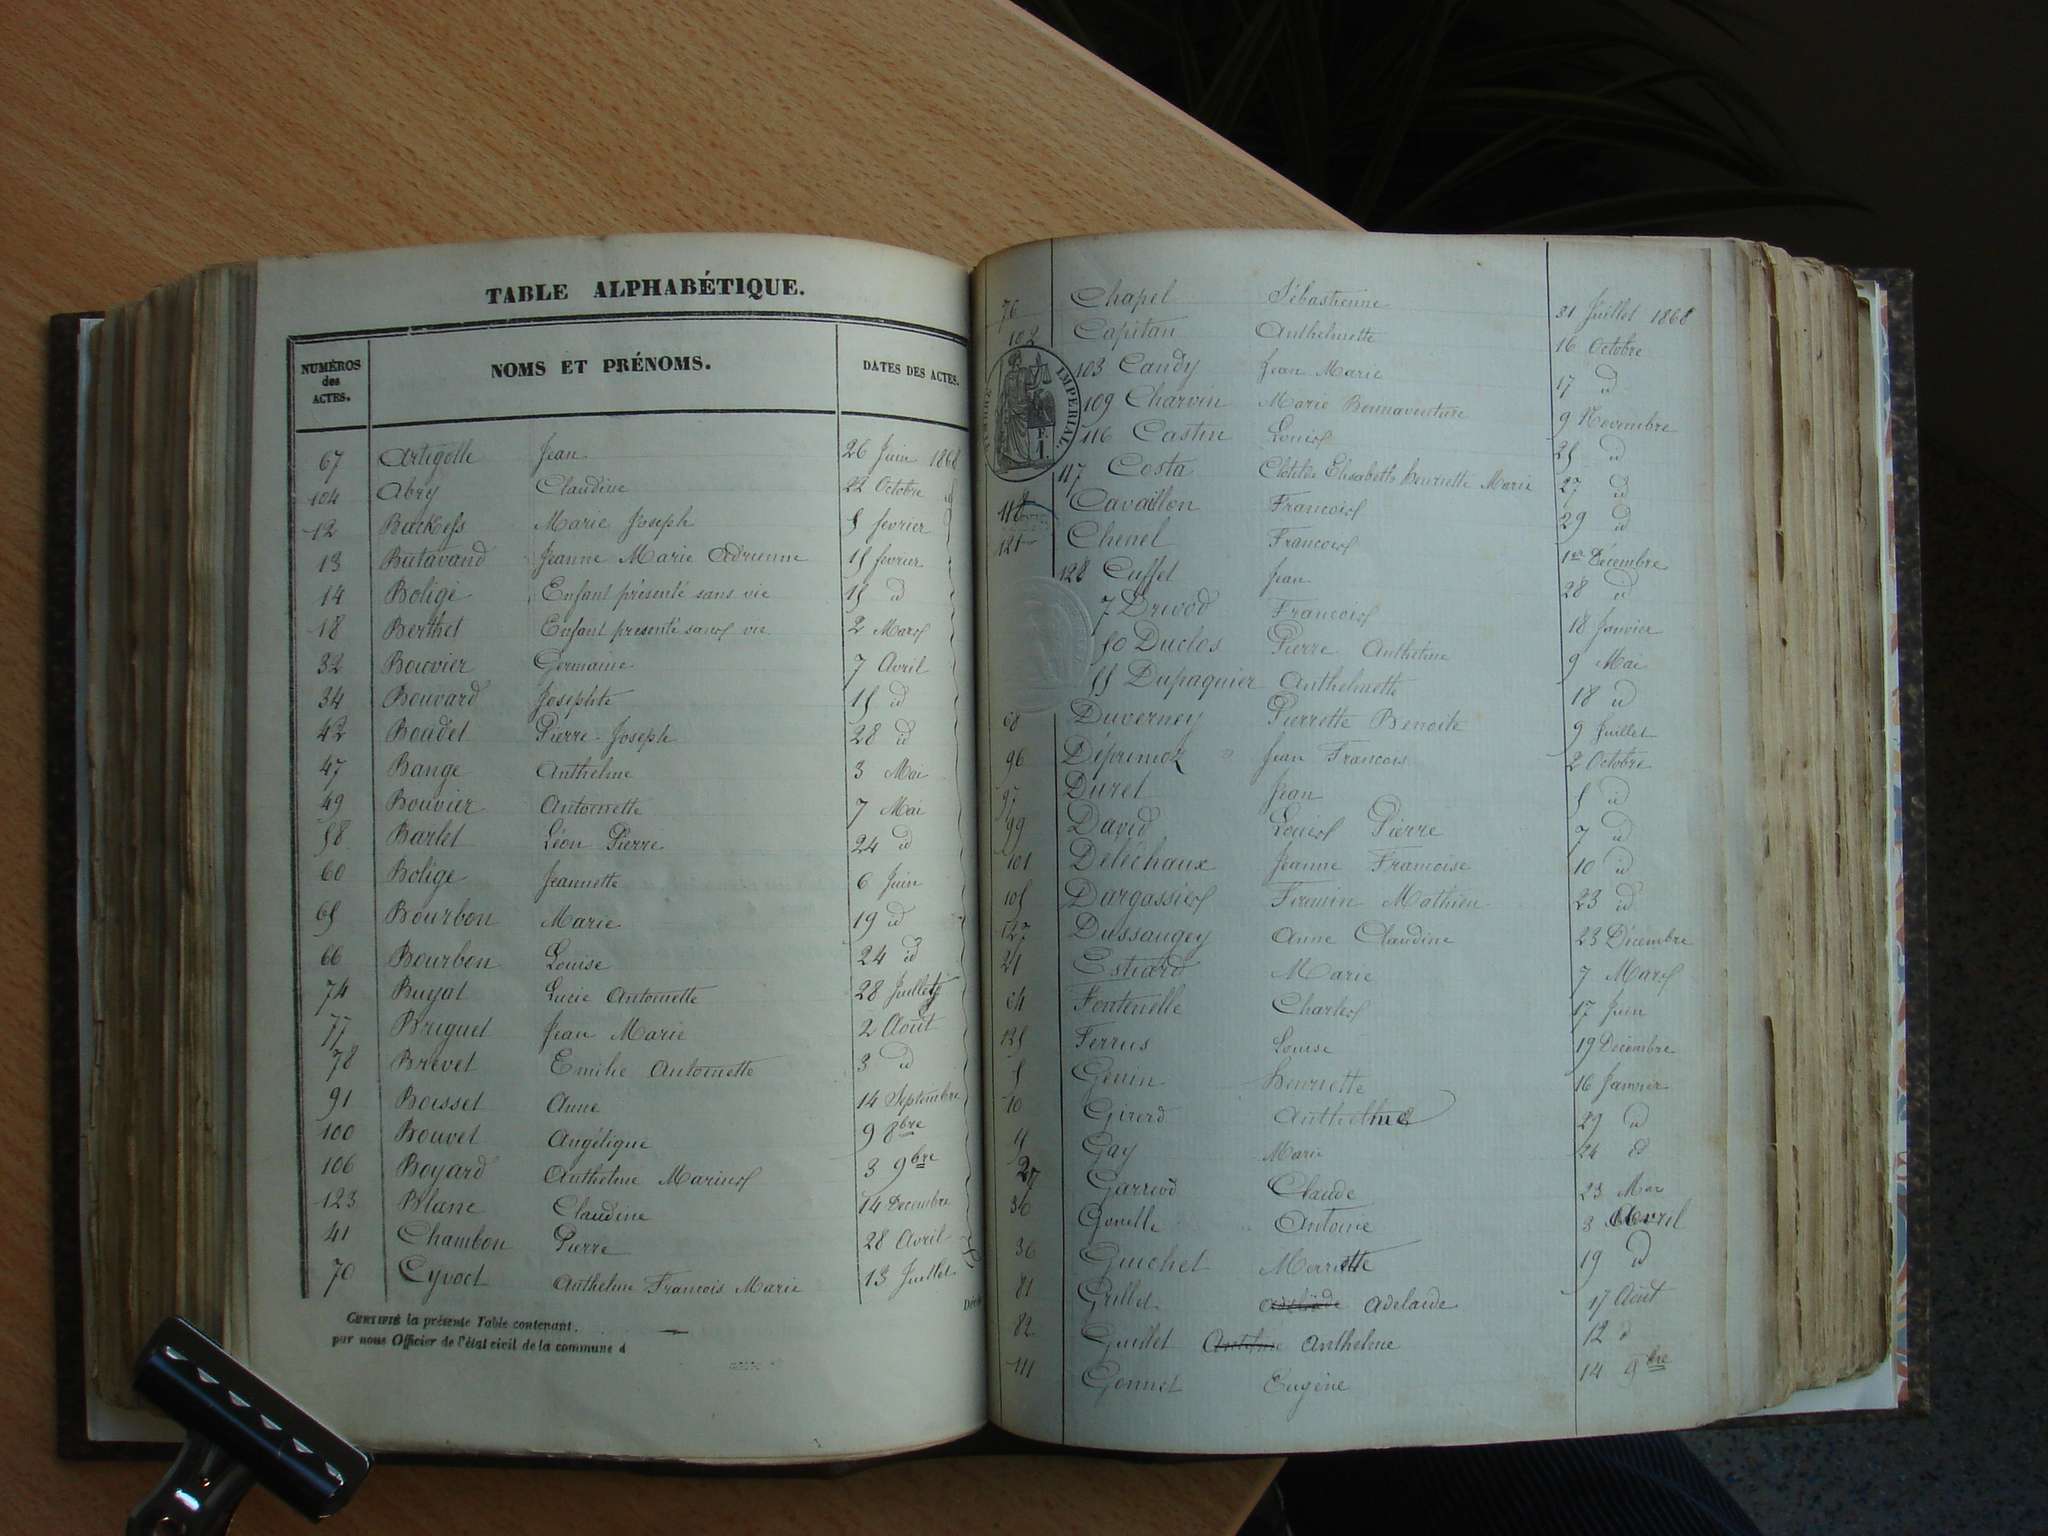 TABLE ALPHABÉTIQUE.
NUMÉROS des ACTES. NOMS ET PRÉNOMS. DATES DES ACTES.
67 Artigolle Jean 26 Juin 1868
104 Abry Claudine 22 Octobre id
12 Marie Joseph 5 fevrier
13 Butavand Jeanne Marie Adrienne 15 fevrier
14 Bolige Enfant présenté sans vie 15 id
18 Berthet Enfant presenté sans vie 2 Mars
32 Bouvier Germaine 7 Avril
34 Bouvard Josephte 15 id
42 Boudet Pierre-Joseph 28 id
47 Bange Anthelme 3 Mai
49 Bouvier Antoinette 7 Mai
58 Barlet Léon Pierre 24 id
60 Bolige Jeannette 6 Juin
65 Bourbon Marie 19 id
66 Bourbon Louise 24 id
74 Buyat Lucie Antoinette 28 Juillet
77 Briguet Jean Marie 2 Août
78 Brevet Emilie Antoinette 3 id
91 Boisset Anne 14 Septembre
100 Bouvet Angélique 9 8bre
106 Boyard Anthelme Marius 3 9bre
123 Blanc Claudine 14 Decembre
41 Chambon Pierre 28 Avril
70 Cyvoct Anthelme Francois Marie 13 Juillet
CERTIFIÉ la présente Table contenant.
par nous Officier de l'état civil de la commune d
76 Chapel Sébastienne 31 Juillet 1868
102 Capitan Anthelmette 16 Octobre
103 Candy Jean Marie 17 id
109 Charvin Marie Bonnaventure 9 Novembre
116 Castin Louis 25 id
117 Costa Clotilde Elisabeth henriette Marie 27 id
118 Cavaillon Francois 29 id
121 Chenel Francois 1er Décembre
128 Cuffet Jean 28 id
7 Drivod Francois 18 Janvier
50 Duclos Pierre Anthelme 9 Mai
55 Dupaquier Anthelmette 18 id
68 Duverney Pierrette Benoite 9 Juillet
96 Déprimoz Jean Francois 2 Octobre
97 Duret Jean 5 id
99 David Louis Pierre 7 id
101 Déléchaux Jeanne Francoise 10 id
105 Dargassies Firmin Mathieu 23 id
127 Dussaugey Anne Claudine 23 Décembre
21 Estiard Marie 7 Mars
64 Fontenelle Charles 17 Juin
125 Ferrus Louise 19 Decembre
5 Genin henriette 16 Janvier
10 Girerd Anthelme 29 id
Gay Marie 24
27 Garriod Claude 23 Mar
36 Gonelle Antoine 3 Avril
36 Guichet Marriette 19 id
81 Grillet Adelaide 17 Août
82 Guillet Anthelme 12 d
111 Gonnet Eugène 14 9bre
TIMBRE IMPERIAL.
F.
1.